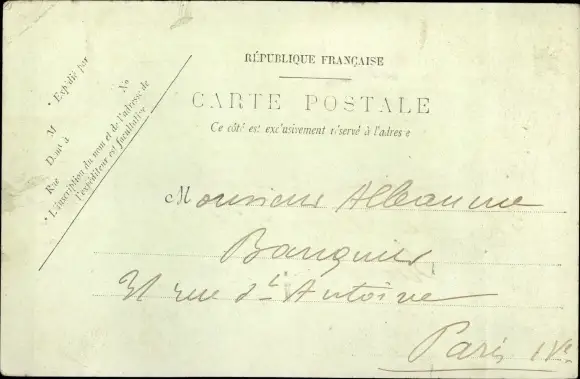 RÉPUBLIQUE FRANÇAISE
CARTE POSTALE
Ce côté est exclusivement réservé à l'adresse
* Expédié par
M
Demt à
Rue No
* L'inscription du nom et de l'adresse de
l'expéditeur est facultative
Monsieur
Banquier
31 rue St Antoine
Paris IVe